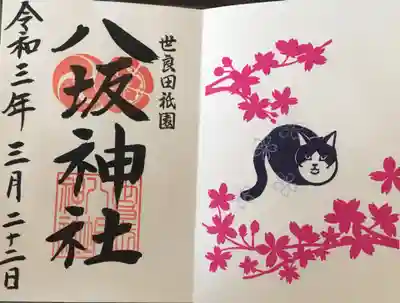 世良田祇園
八坂神社
令和三年 三月 二十二日